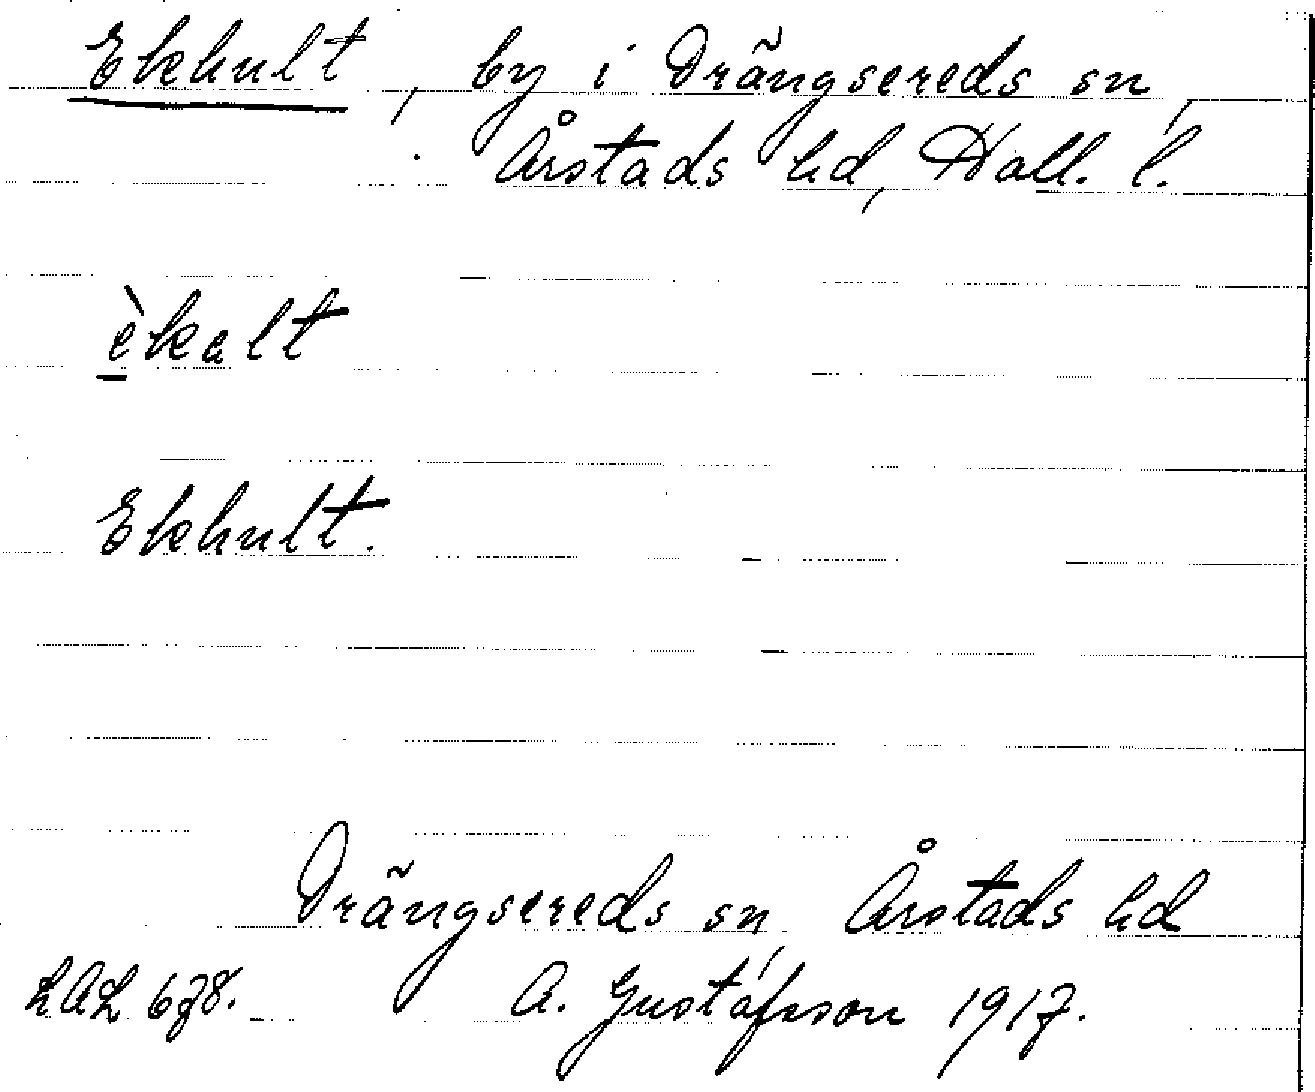 Ekhult, by i Drängsereds sn,
Årstads hd, Hall. l.
èkalt
Ekhult.
Drängsereds sn, Årstads hd
LAL 678. A. Gustafsson 1917.